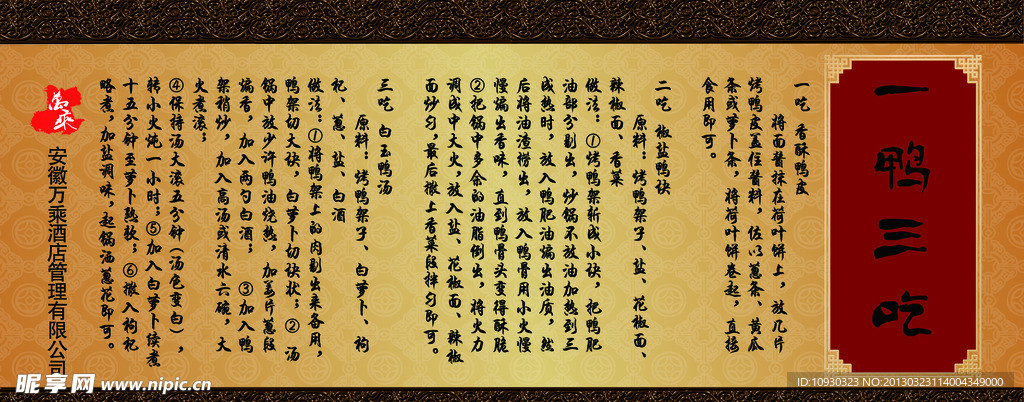 一鸭三吃
一吃 香酥鸭皮
将面酱抹在荷叶饼上,放几片
烤鸭皮盖住酱料,佐以葱条、黄瓜
条或萝卜条,将荷叶饼卷起,直接
食用即可。
二吃 椒盐鸭块
原料:烤鸭架子、盐、花椒面、
辣椒面、香菜
做法:①烤鸭架斩成小块,把鸭肥
油部分剔出,炒锅不放油加热到三
成热时,放入鸭肥油煸出油质,然
后将油渣捞出,放入鸭骨用小火慢
慢煸出香味,直到鸭骨头变得酥脆
②把锅中多余的油脂倒出,将火力
调成中大火,放入盐、花椒面、辣椒
面炒匀,最后撒上香菜段拌匀即可。
三吃 白玉鸭汤
原料:烤鸭架子、白萝卜、枸
杞、葱、盐、白酒
做法:①将鸭架上的肉剔出来备用,
鸭架切大块,白萝卜切块状;②汤
锅中放少许鸭油烧热,加姜片葱段
煸香,加入两勺白酒;③加入鸭
架稍炒,加入高汤或清水六碗,大
火煮滚;
④保持汤大滚五分钟(汤色变白),
转小火炖一小时;⑤加入白萝卜续煮
十五分钟至萝卜熟软;⑥撒入枸杞
略煮,加盐调味,起锅洒葱花即可。
万乘
安徽万乘酒店管理有限公司
昵享网 www.nipic.cn
ID:10930323 NO:20130323114004349000